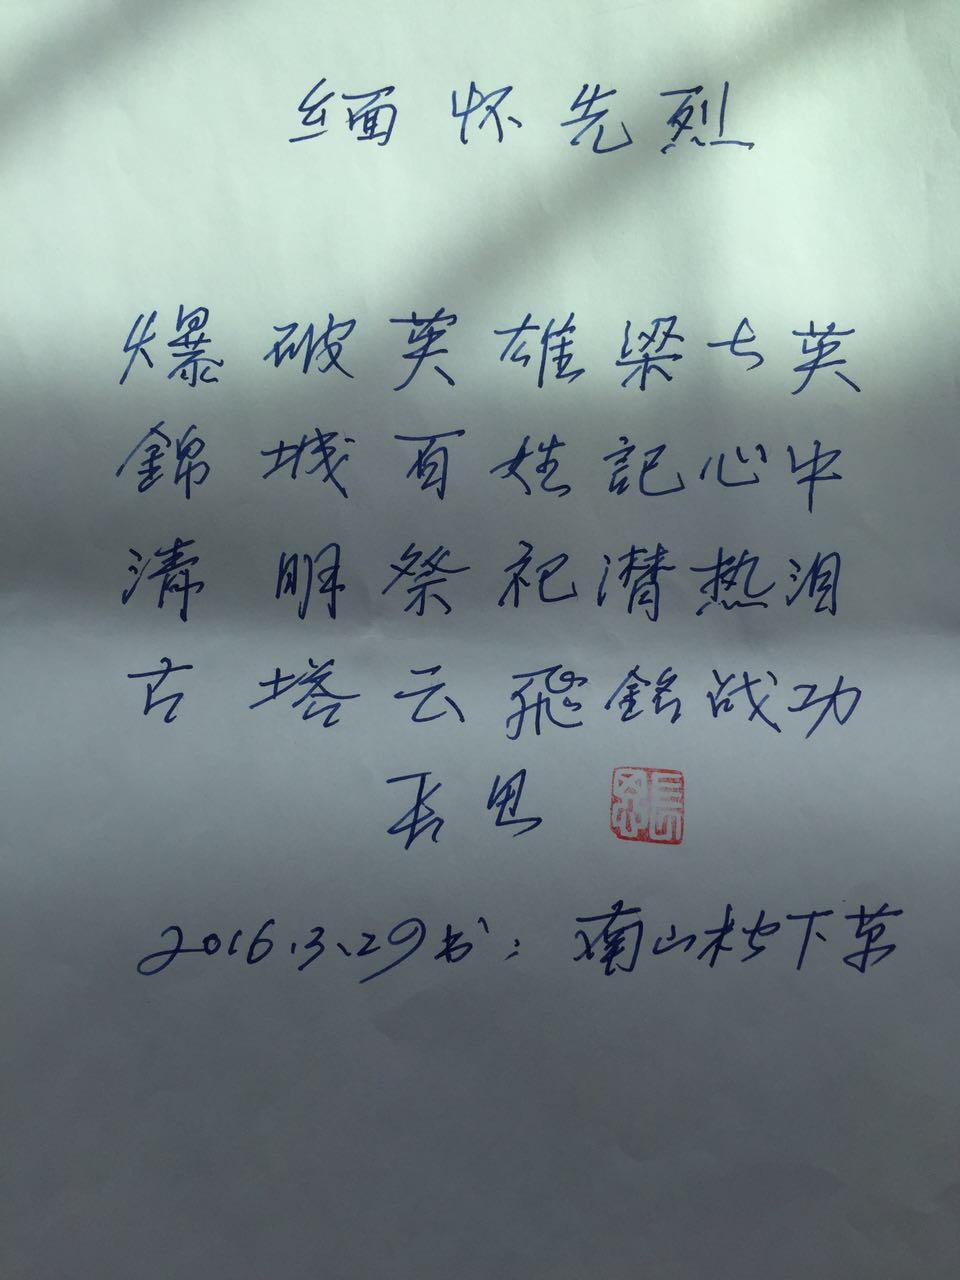 缅怀先烈
爆破英雄梁士英
錦城百姓記心中
清明祭祀潸热泪
古塔云飛銘战功
长思
2016.3.29书：南山松下草